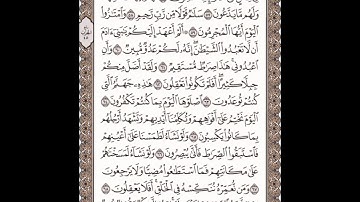 وَلَهُم مَّا يَدَّعُونَ ۝ سَلَٰمٌ قَوْلًا مِّن رَّبٍّ رَّحِيمٍ ۝ وَٱمْتَٰزُوا۟
ٱلْيَوْمَ أَيُّهَا ٱلْمُجْرِمُونَ ۝ أَلَمْ أَعْهَدْ إِلَيْكُمْ يَٰبَنِىٓ ءَادَمَ
أَن لَّا تَعْبُدُوا۟ ٱلشَّيْطَٰنَ إِنَّهُۥ لَكُمْ عَدُوٌّ مُّبِينٌ ۝ وَأَنِ
ٱعْبُدُونِى هَٰذَا صِرَٰطٌ مُّسْتَقِيمٌ ۝ وَلَقَدْ أَضَلَّ مِنكُمْ
جِبِلًّا كَثِيرًا أَفَلَمْ تَكُونُوا۟ تَعْقِلُونَ ۝ هَٰذِهِۦ جَهَنَّمُ ٱلَّتِى
كُنتُمْ تُوعَدُونَ ۝ ٱصْلَوْهَا ٱلْيَوْمَ بِمَا كُنتُمْ تَكْفُرُونَ ۝
ٱلْيَوْمَ نَخْتِمُ عَلَىٰٓ أَفْوَٰهِهِمْ وَتُكَلِّمُنَآ أَيْدِيهِمْ وَتَشْهَدُ أَرْجُلُهُم
بِمَا كَانُوا۟ يَكْسِبُونَ ۝ وَلَوْ نَشَآءُ لَطَمَسْنَا عَلَىٰٓ أَعْيُنِهِمْ
فَٱسْتَبَقُوا۟ ٱلصِّرَٰطَ فَأَنَّىٰ يُبْصِرُونَ ۝ وَلَوْ نَشَآءُ لَمَسَخْنَٰهُمْ
عَلَىٰ مَكَانَتِهِمْ فَمَا ٱسْتَطَٰعُوا۟ مُضِيًّا وَلَا يَرْجِعُونَ
۝ وَمَن نُّعَمِّرْهُ نُنَكِّسْهُ فِى ٱلْخَلْقِ أَفَلَا يَعْقِلُونَ ۝